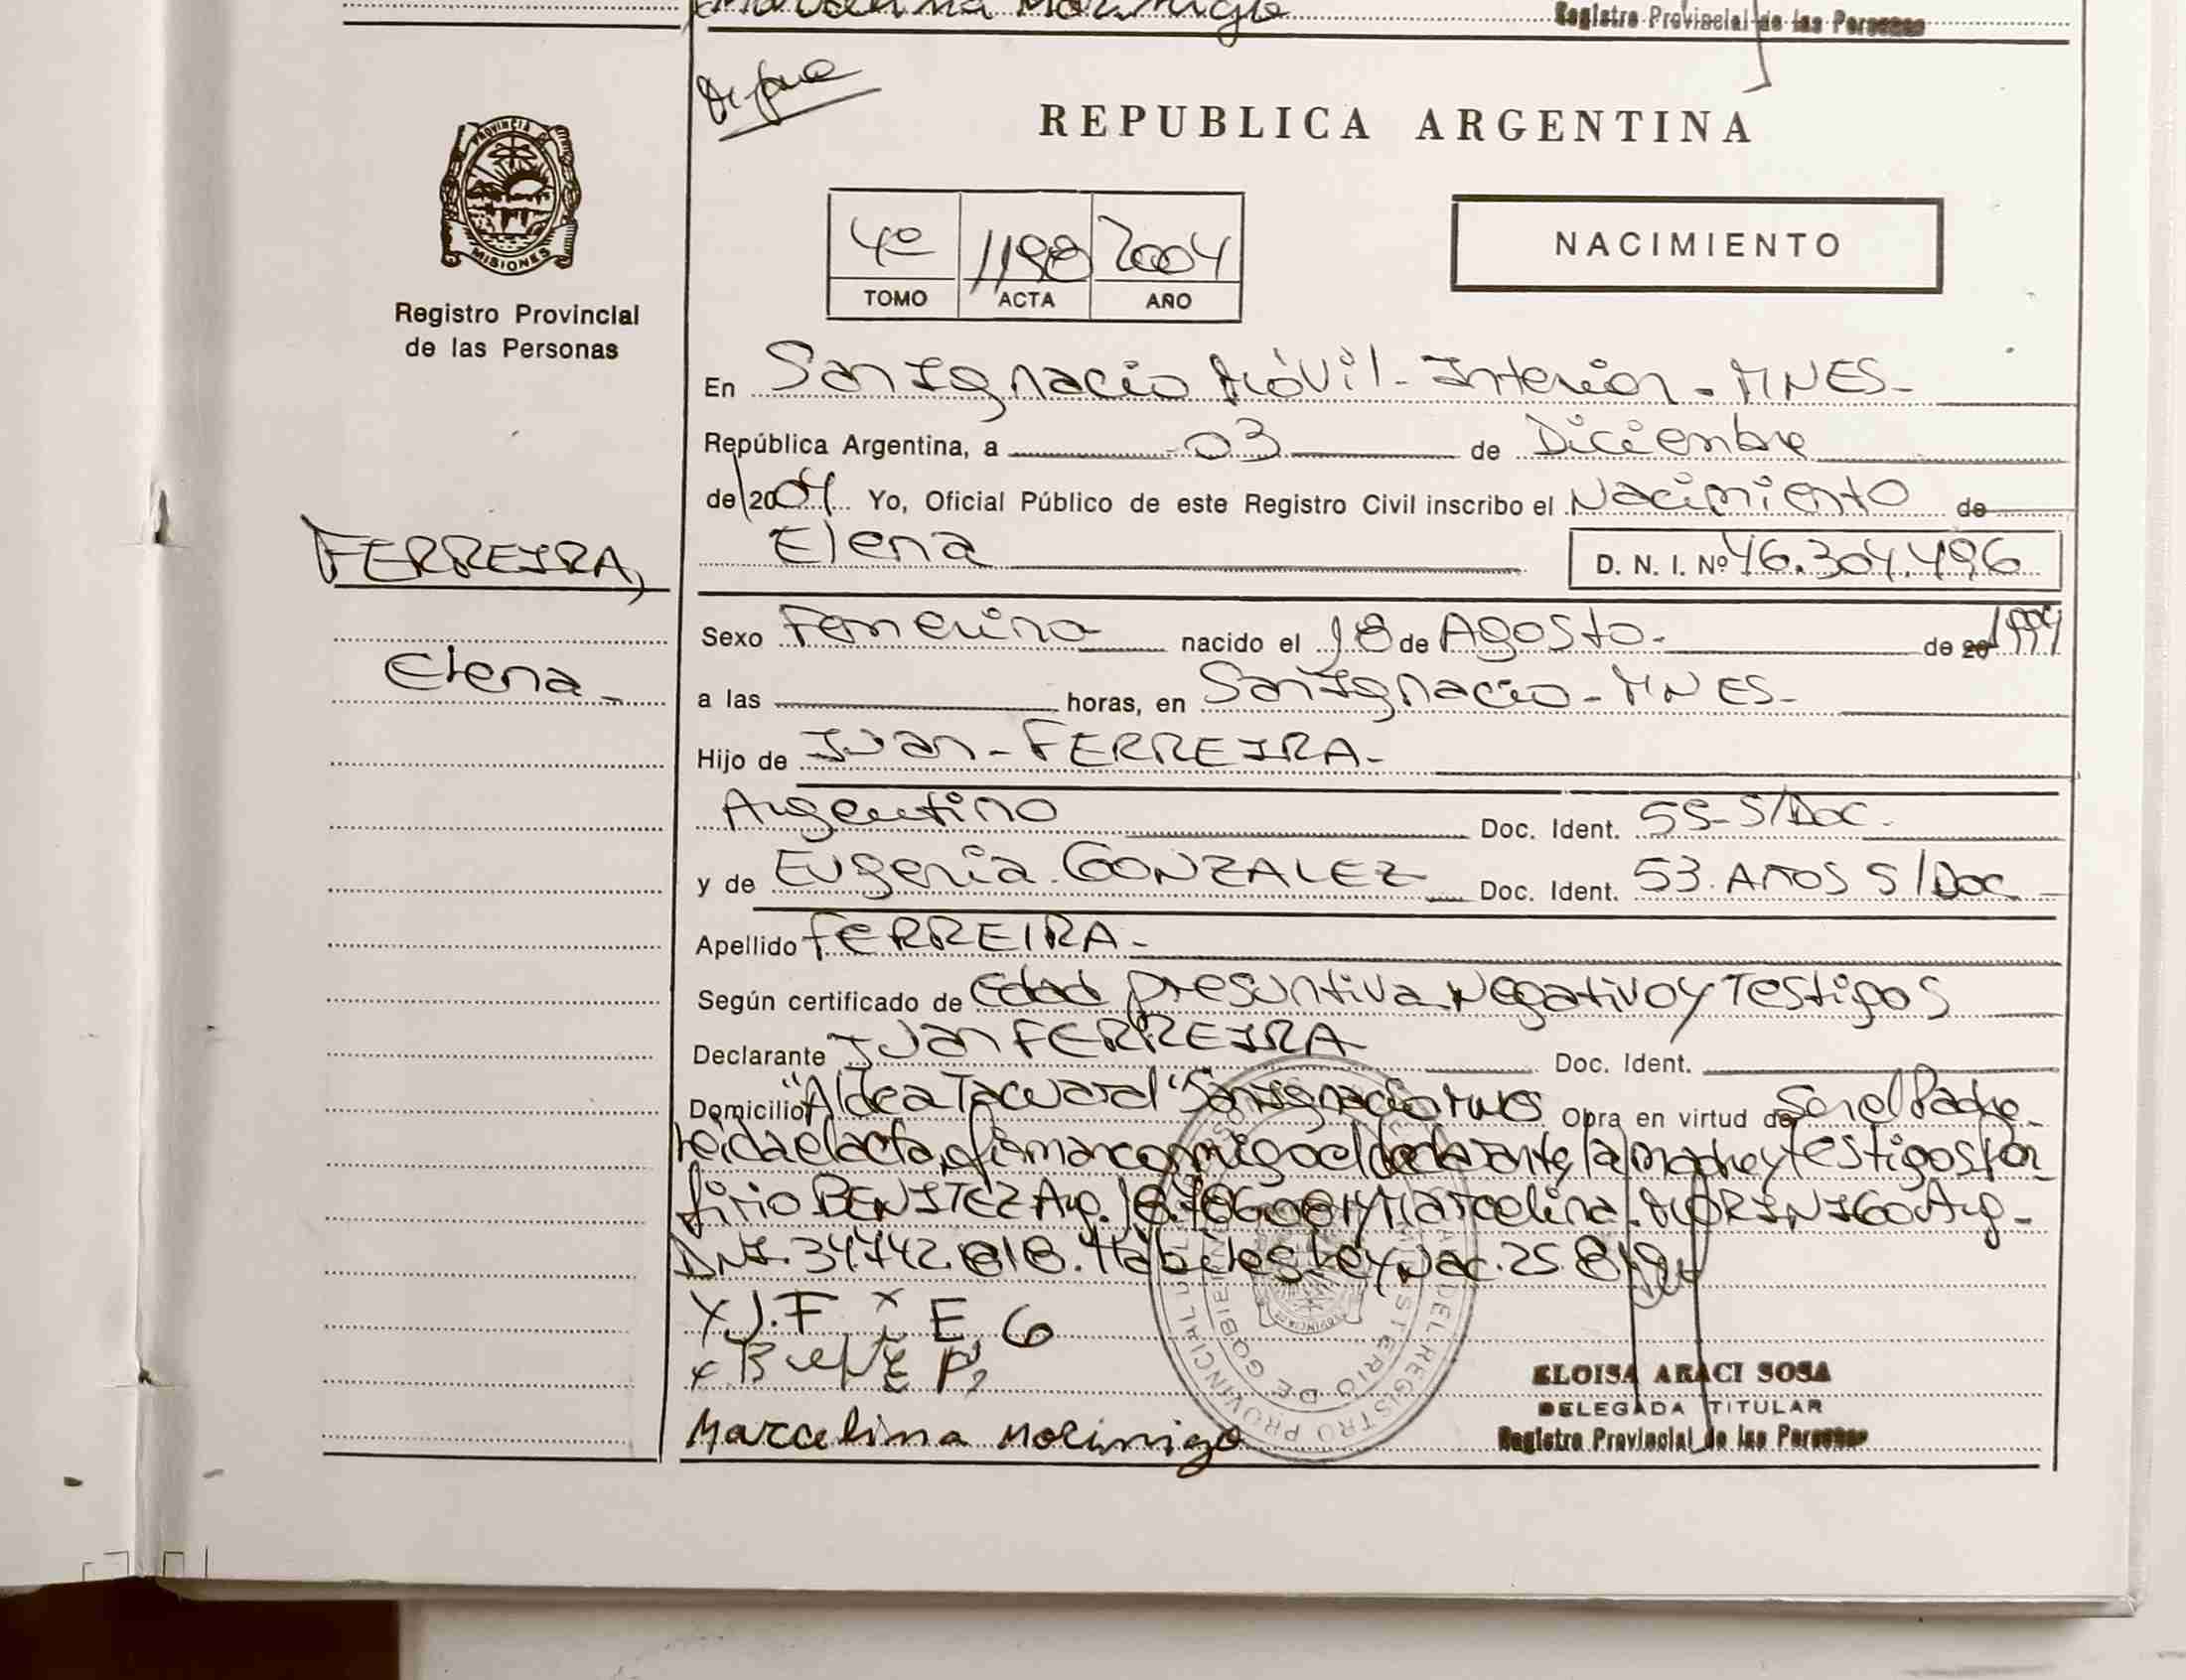 Marcelina Morinigo
Registro Provincial de las Personas
PROVINCIA DE
MISIONES
Registro Provincial
de las Personas
REPUBLICA ARGENTINA
4º 1198 2004
TOMO ACTA AÑO
NACIMIENTO
En San Ignacio Móvil - Interior - MNES -
República Argentina, a 03 de Diciembre
de 2004 Yo, Oficial Público de este Registro Civil inscribo el Nacimiento de
FERREIRA,
Elena
D. N. I. Nº 46.304.496
Sexo Femenino nacido el 18 de Agosto - de 20 1994
Elena -
a las horas, en San Ignacio - MNES -
Hijo de Juan - FERREIRA -
Argentino Doc. Ident. 55 - S/Doc.
y de Eugenia GONZALEZ Doc. Ident. 53. Años S/Doc
Apellido FERREIRA -
Según certificado de Edad presuntiva Negativo y Testigos
Declarante Juan FERREIRA Doc. Ident.
Domicilio "Aldea Tacuaral" San Ignacio MNES Obra en virtud de Ser el Padre -
Leida el acta, firma conmigo el declarante, la madre y testigos Por
firio BENITEZ Arg. y Marcelina MORINIGO Arg -
DNI. 34.742.818. Habiles Ley Nac. 25.819
X J.F X E.G
x BENE P,
Marcelina Morinigo
ELOISA ARACI SOSA
DELEGADA TITULAR
Registro Provincial de las Personas